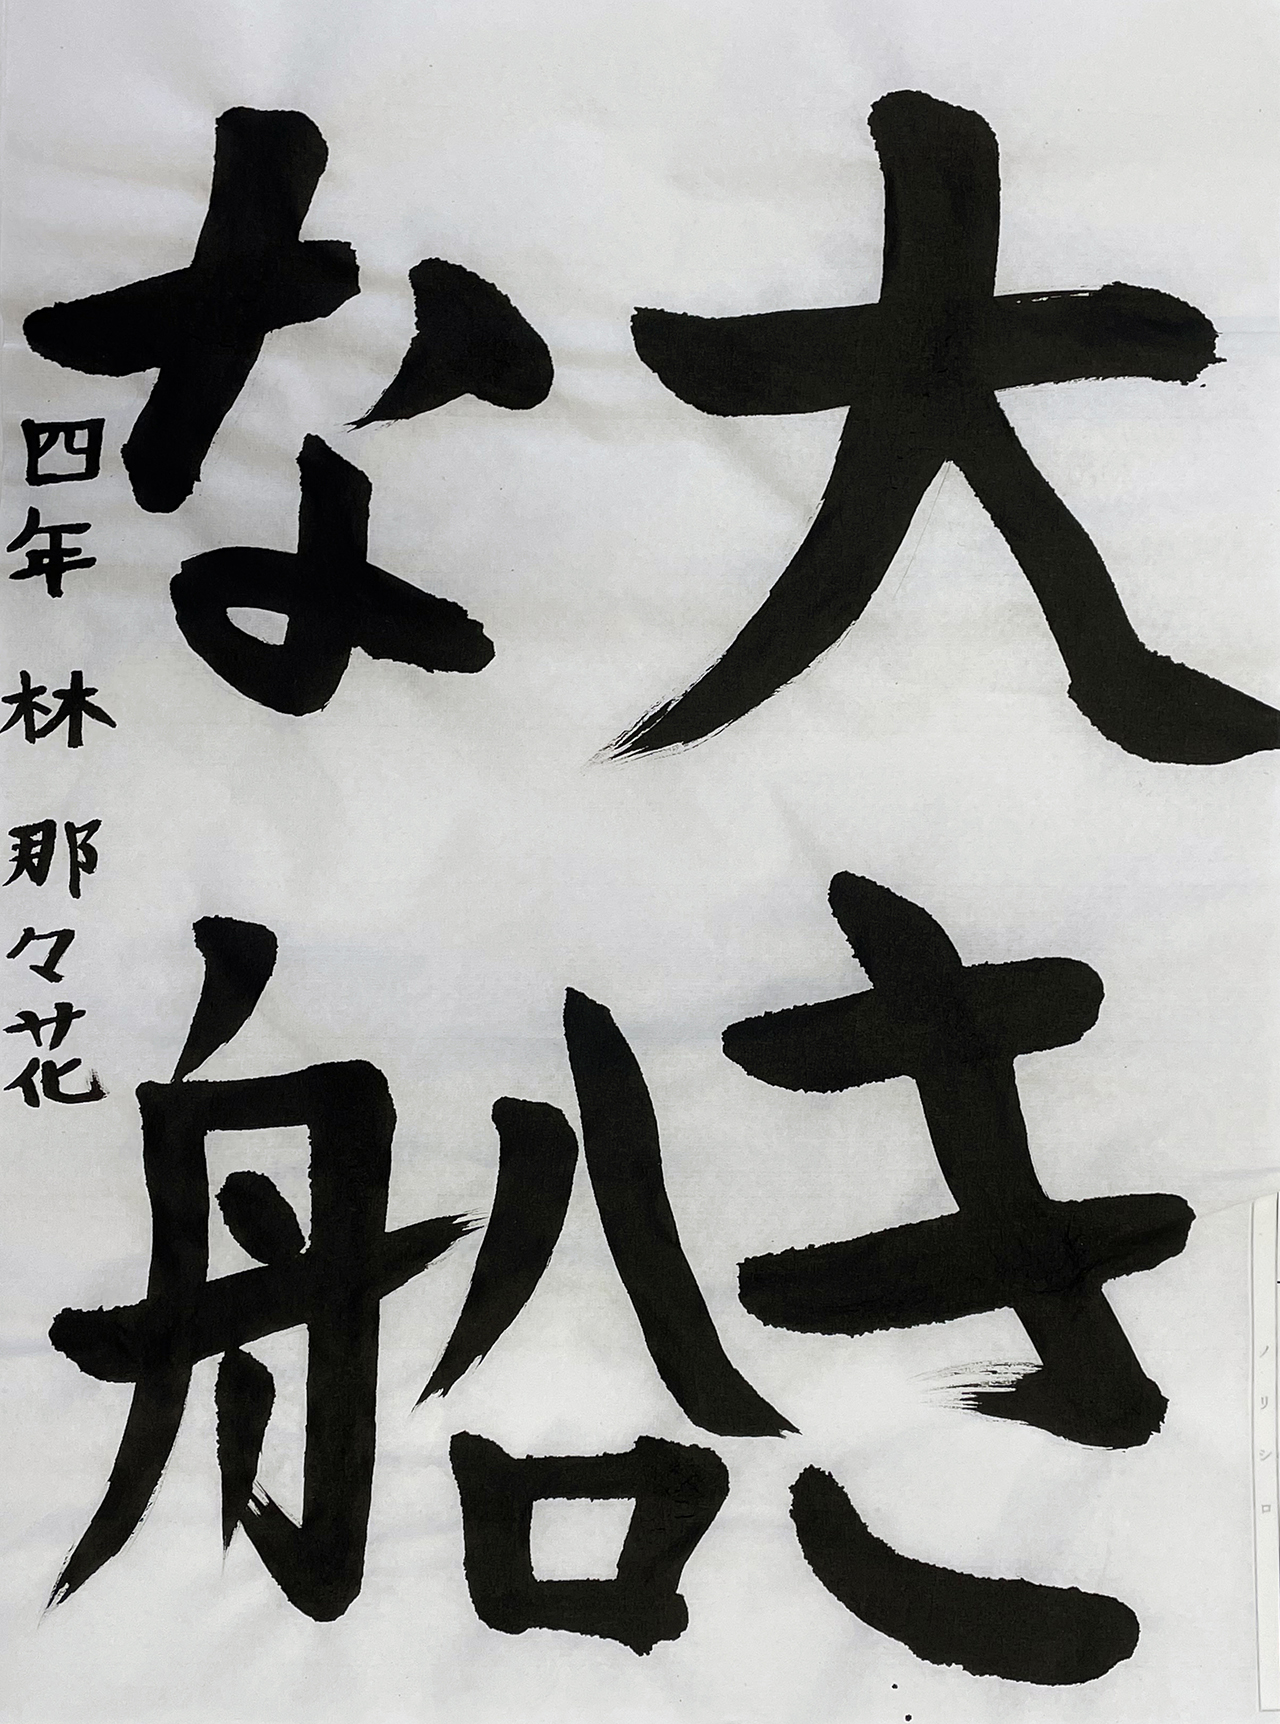 大き
な船
四年 林 那々花
ノリシロ